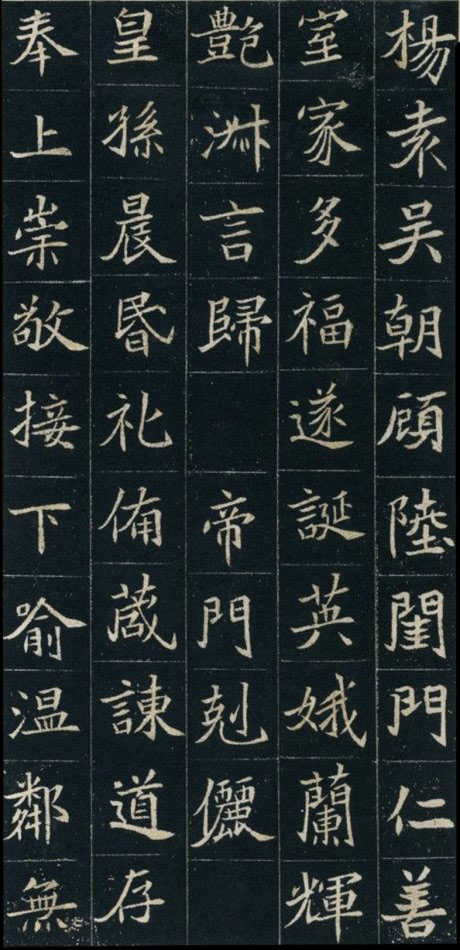 楊袁吳朝顧陸閨門仁善
室家多福遂誕英娥蘭輝
艷淑言歸 帝門剋儷
皇孫晨昬礼俻葴諫道存
奉上崇敬接下喻温鄰無